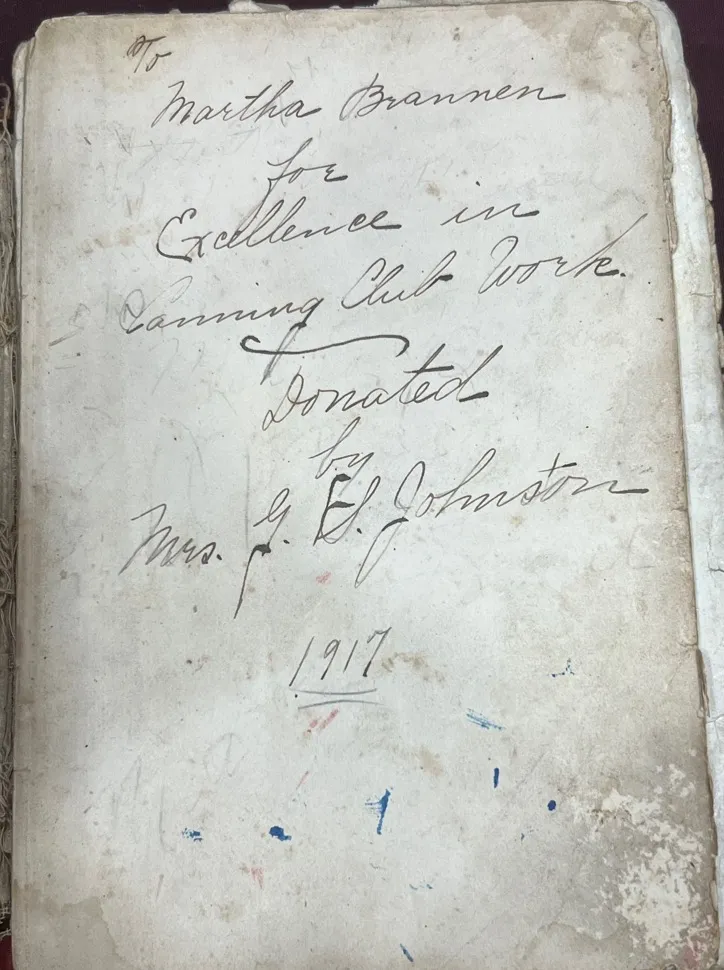 To
Martha Brannen
for
Excellence in
Canning Club Work.
Donated
by
Mrs. G. S. Johnston
1917